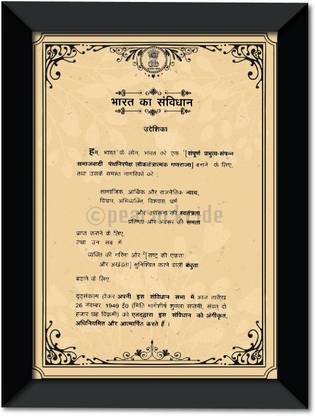 भारत का संविधान
उद्देशिका
हम, भारत के लोग, भारत को एक [संपूर्ण प्रभुत्व-संपन्न
समाजवादी पंथनिरपेक्ष लोकतंत्रात्मक गणराज्य] बनाने के लिए,
तथा उसके समस्त नागरिकों को :
सामाजिक, आर्थिक और राजनैतिक न्याय,
विचार, अभिव्यक्ति, विश्वास, धर्म
और उपासना की स्वतंत्रता,
प्रतिष्ठा और अवसर की समता
प्राप्त कराने के लिए,
तथा उन सब में
व्यक्ति की गरिमा और [राष्ट्र की एकता
और अखंडता] सुनिश्चित करने वाली बंधुता
बढ़ाने के लिए
दृढ़संकल्प होकर अपनी इस संविधान सभा में आज तारीख
26 नवम्बर, 1949 ई० (मिति मार्गशीर्ष शुक्ला सप्तमी, संवत दो
हजार छह विक्रमी) को एतद्द्वारा इस संविधान को अंगीकृत,
अधिनियमित और आत्मार्पित करते हैं ।